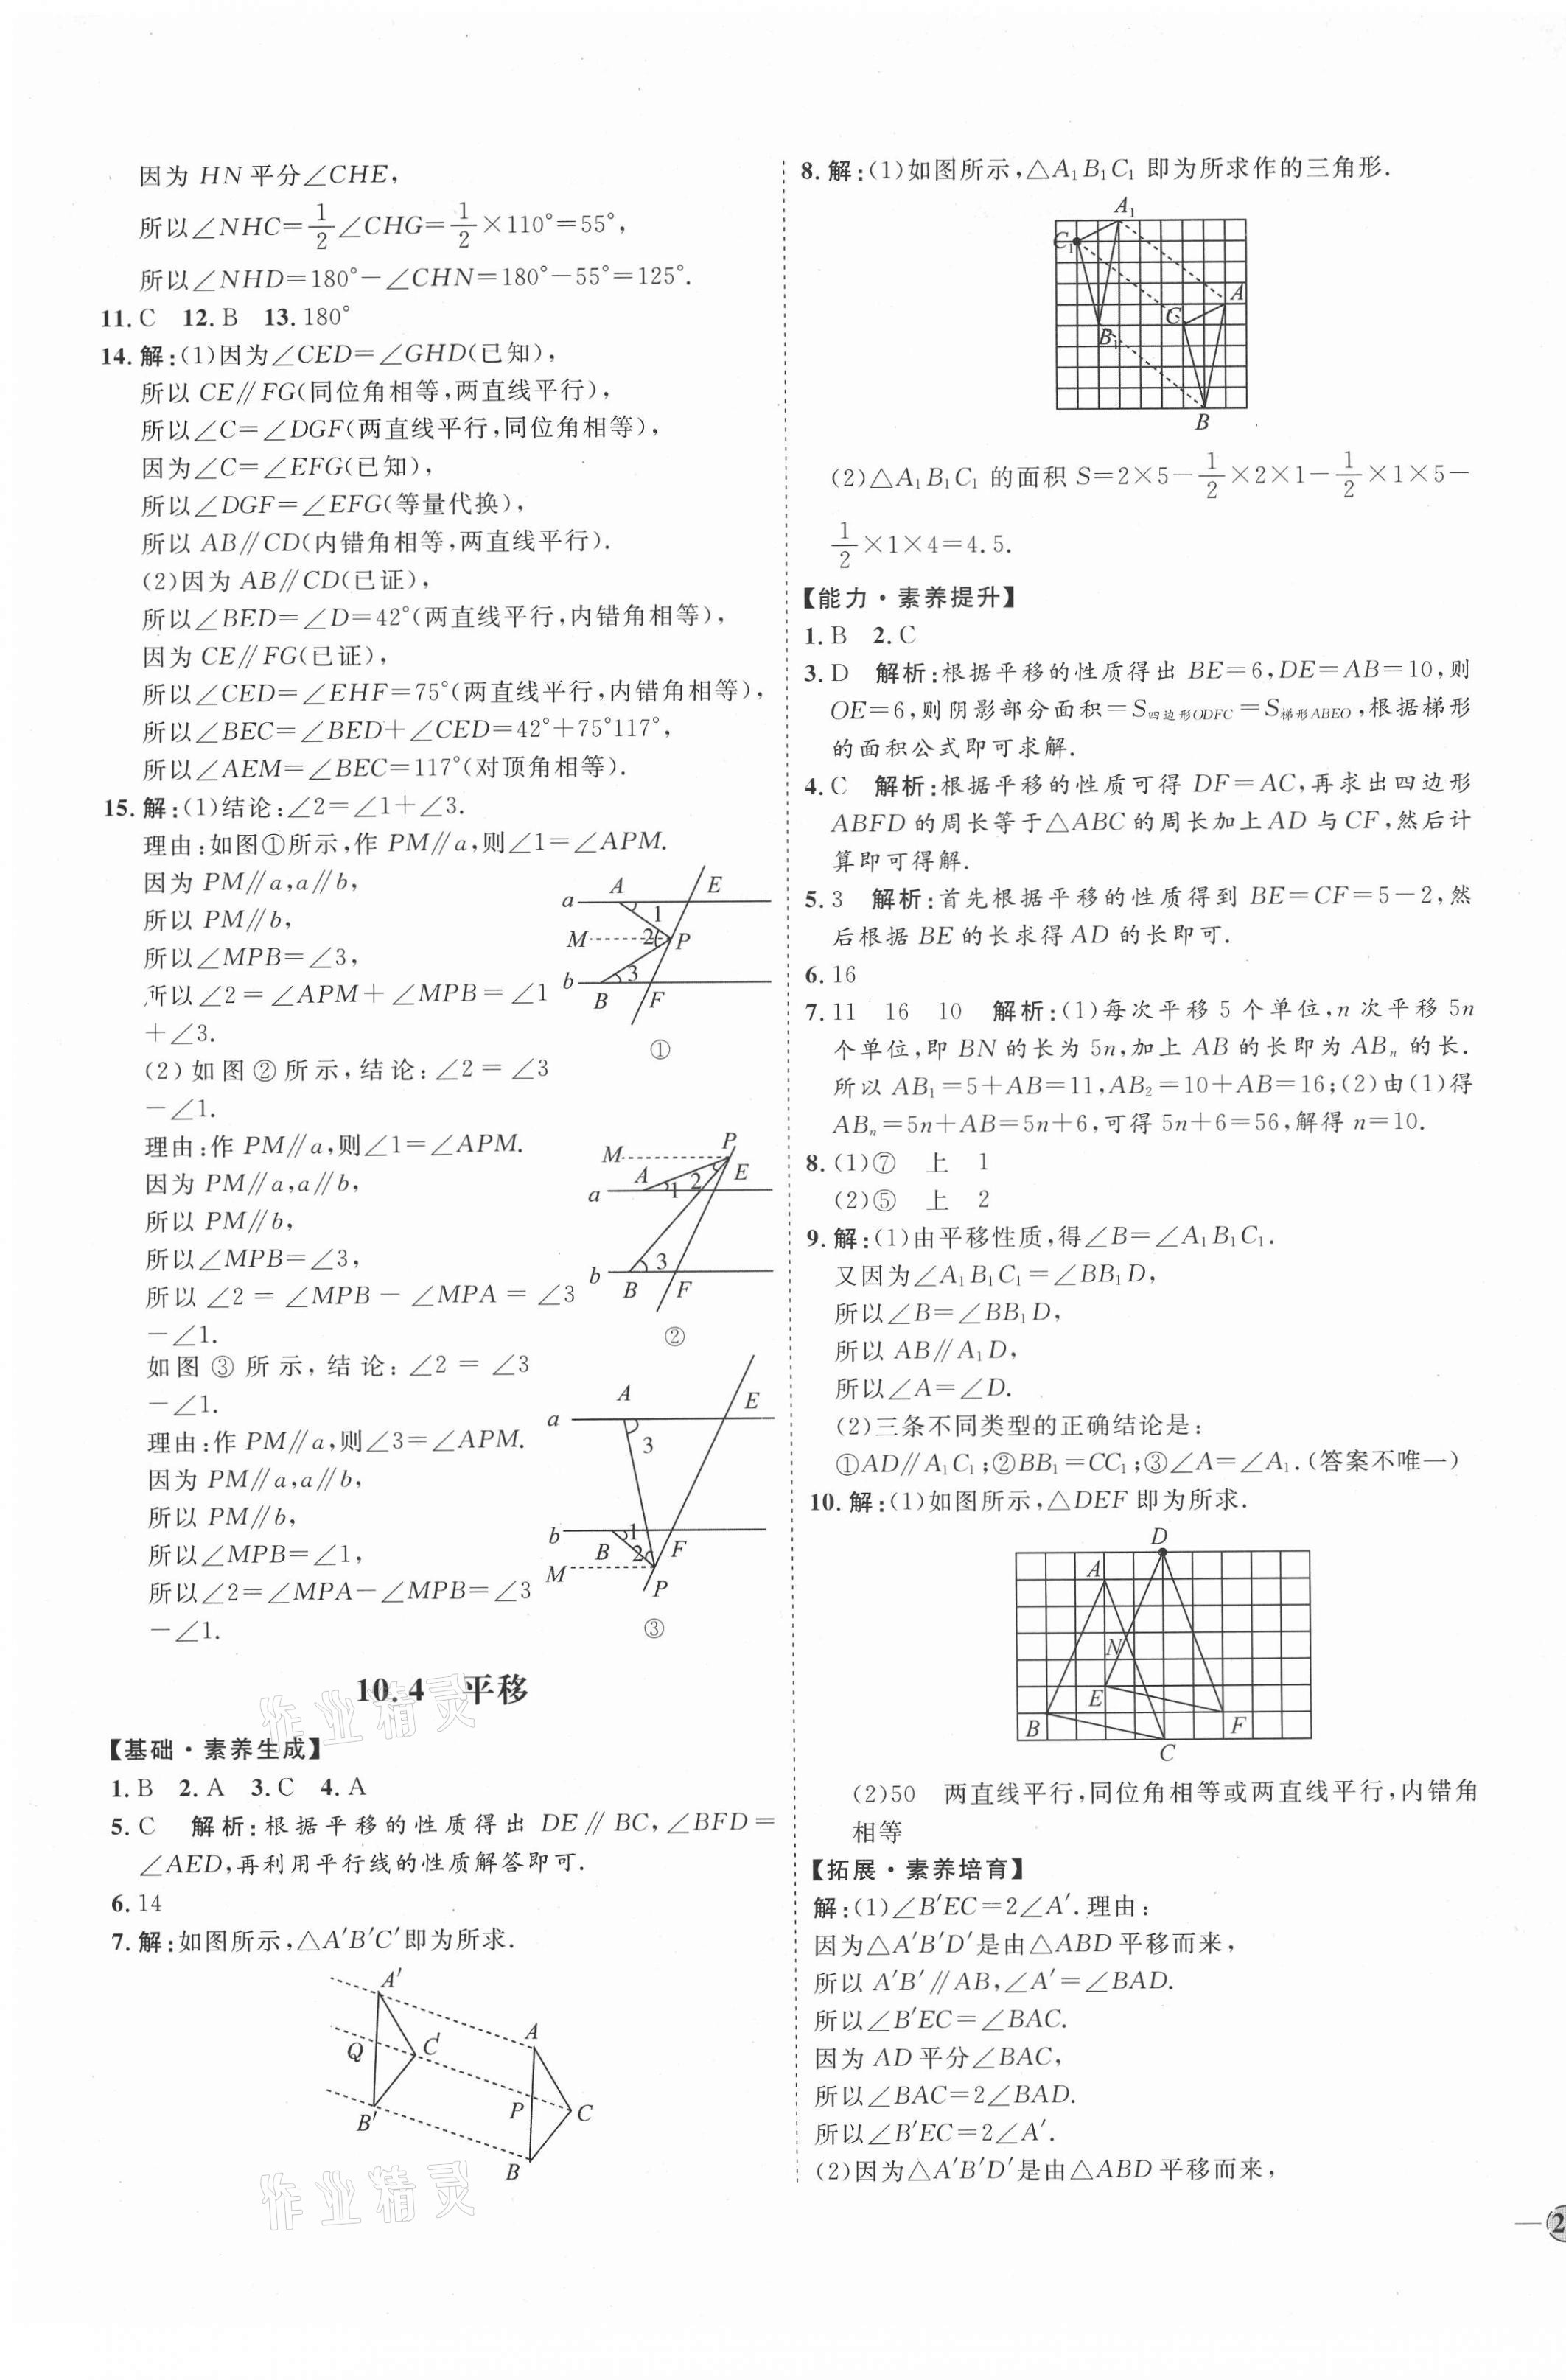 因为 HN 平分∠CHE,
所以∠NHC=1/2∠CHG=1/2×110°=55°,
所以∠NHD=180°-∠CHN=180°-55°=125°.
11. C 12. B 13. 180°
14. 解:(1)因为∠CED=∠GHD(已知),
所以 CE∥FG(同位角相等,两直线平行),
所以∠C=∠DGF(两直线平行,同位角相等),
因为∠C=∠EFG(已知),
所以∠DGF=∠EFG(等量代换),
所以 AB∥CD(内错角相等,两直线平行).
(2)因为 AB∥CD(已证),
所以∠BED=∠D=42°(两直线平行,内错角相等),
因为 CE∥FG(已证),
所以∠CED=∠EHF=75°(两直线平行,内错角相等),
所以∠BEC=∠BED+∠CED=42°+75°117°,
所以∠AEM=∠BEC=117°(对顶角相等).
15. 解:(1)结论:∠2=∠1+∠3.
理由:如图①所示,作 PM∥a,则∠1=∠APM.
因为 PM∥a,a∥b,
所以 PM∥b,
所以∠MPB=∠3,
所以∠2=∠APM+∠MPB=∠1
+∠3.
a A E 1 M 2 P b 3 B F
①
(2)如图②所示,结论:∠2=∠3
-∠1.
理由:作 PM∥a,则∠1=∠APM.
因为 PM∥a,a∥b,
所以 PM∥b,
所以∠MPB=∠3,
所以∠2=∠MPB-∠MPA=∠3
-∠1.
P M A E 1 2 a b 3 B F
②
如图③所示,结论:∠2=∠3
-∠1.
理由:作 PM∥a,则∠3=∠APM.
因为 PM∥a,a∥b,
所以 PM∥b,
所以∠MPB=∠1,
所以∠2=∠MPA-∠MPB=∠3
-∠1.
A E a 3 b 1 B 2 F M P
③
10.4 平移
【基础·素养生成】
1. B 2. A 3. C 4. A
5. C 解析:根据平移的性质得出 DE∥BC,∠BFD=
∠AED,再利用平行线的性质解答即可.
6. 14
7. 解:如图所示,△A′B′C′即为所求.
A′ A Q C′ B′ P C B
作业精灵
作业精灵
8. 解:(1)如图所示,△A₁B₁C₁ 即为所求作的三角形.
A₁ C₁ A C B₁ B
(2)△A₁B₁C₁ 的面积 S=2×5-1/2×2×1-1/2×1×5-
1/2×1×4=4.5.
【能力·素养提升】
1. B 2. C
3. D 解析:根据平移的性质得出 BE=6,DE=AB=10,则
OE=6,则阴影部分面积=S四边形ODFC=S梯形ABEO,根据梯形
的面积公式即可求解.
4. C 解析:根据平移的性质可得 DF=AC,再求出四边形
ABFD 的周长等于△ABC 的周长加上 AD 与 CF,然后计
算即可得解.
5. 3 解析:首先根据平移的性质得到 BE=CF=5-2,然
后根据 BE 的长求得 AD 的长即可.
6. 16
7. 11 16 10 解析:(1)每次平移 5 个单位,n 次平移 5n
个单位,即 BN 的长为 5n,加上 AB 的长即为 ABₙ 的长.
所以 AB₁=5+AB=11,AB₂=10+AB=16;(2)由(1)得
ABₙ=5n+AB=5n+6,可得 5n+6=56,解得 n=10.
8. (1)⑦ 上 1
(2)⑤ 上 2
9. 解:(1)由平移性质,得∠B=∠A₁B₁C₁.
又因为∠A₁B₁C₁=∠BB₁D,
所以∠B=∠BB₁D,
所以 AB∥A₁D,
所以∠A=∠D.
(2)三条不同类型的正确结论是:
①AD∥A₁C₁;②BB₁=CC₁;③∠A=∠A₁.(答案不唯一)
10. 解:(1)如图所示,△DEF 即为所求.
D A N E B F C
(2)50 两直线平行,同位角相等或两直线平行,内错角
相等
【拓展·素养培育】
解:(1)∠B′EC=2∠A′.理由:
因为△A′B′D′是由△ABD 平移而来,
所以 A′B′∥AB,∠A′=∠BAD.
所以∠B′EC=∠BAC.
因为 AD 平分∠BAC,
所以∠BAC=2∠BAD.
所以∠B′EC=2∠A′.
(2)因为△A′B′D′是由△ABD 平移而来,
— 2